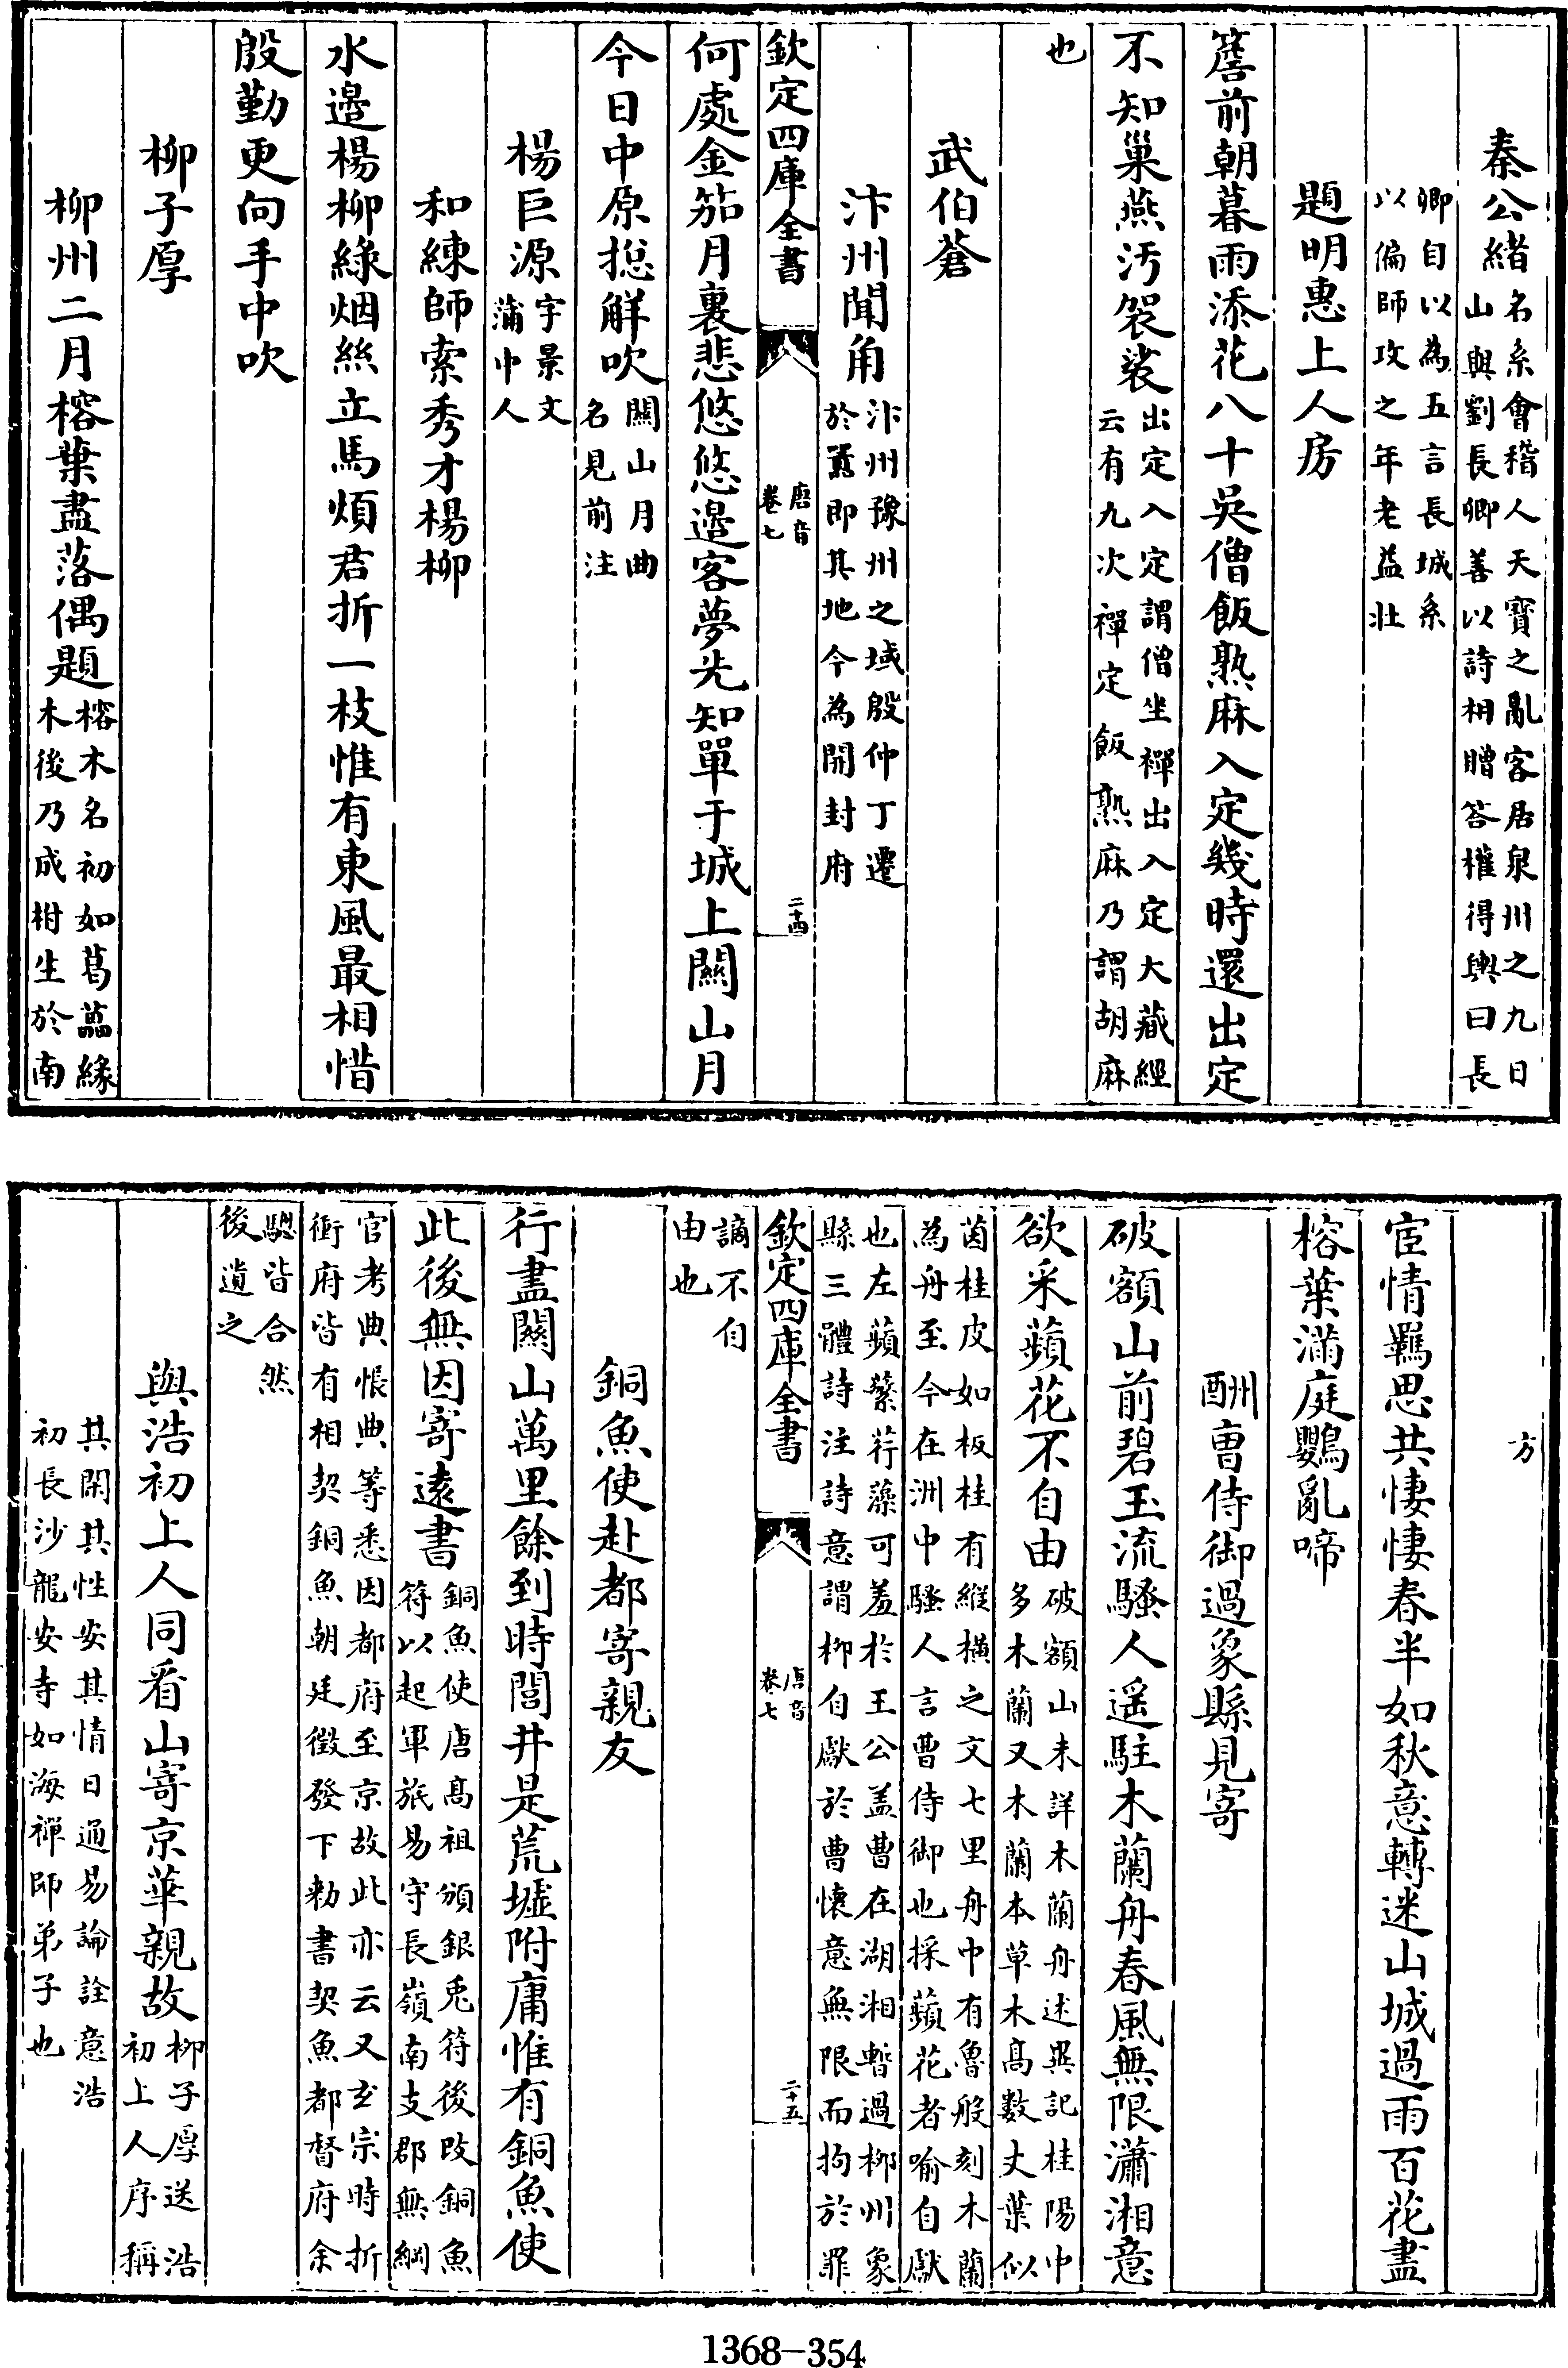 秦公緒名系會稽人天寶之亂客居泉州之九日
山與劉長卿善以詩相贈答權得輿曰長
卿自以為五言長城系
以偏師攻之年老益壯
題明惠上人房
簷前朝暮雨添花八十吳僧飯熟麻入定幾時還出定
不知巢燕汚袈裟出定入定謂僧坐禪出入定大藏經
云有九次禪定飯熟麻乃謂胡麻
也
武伯蒼
汴州聞角汴州豫州之域殷仲丁遷
於囂即其地今為開封府
欽定四庫全書
唐音
卷七
二十四
何處金笳月裏悲悠悠邉客夢光知單于城上關山月
今日中原捴解吹關山月曲
名見前注
楊巨源字景文
蒲中人
和練師索秀才楊柳
水邉楊柳綠烟絲立馬煩君折一枝惟有東風最相惜
殷勤更向手中吹
柳子厚
柳州二月榕葉盡落偶題榕木名初如葛藟緣
木後乃成柑生於南
方
宦情羈思共悽悽春半如秋意轉迷山城過雨百花盡
榕葉滿庭鸎亂啼
酬曺侍御過象縣見寄
破額山前碧玉流騷人遥駐木蘭舟春風無限瀟湘意
欲采蘋花不自由破額山未詳木蘭舟述異記桂陽中
多木蘭又木蘭本草木髙數丈葉似
茵桂皮如板桂有縱横之文七里舟中有魯般刻木蘭
為舟至今在洲中騷人言曹侍御也採蘋花者喻自獻
也左蘋蘩荇藻可羞於王公盖曹在湖湘暫過栁州象
縣三體詩注詩意謂栁自獻於曹懐意無限而拘於罪
欽定四庫全書
唐音
卷七
二十五
謫不自
由也
銅魚使赴都寄親友
行盡關山萬里餘到時閭井是荒墟附庸惟有銅魚使
此後無因寄遠書銅魚使唐髙祖頒銀兎符後改銅魚
符以起軍旅易守長嶺南支郡無綱
官考典悵典等悉因都府至京故此亦云又玄宗時折
衝府皆有相契銅魚朝廷徵發下勅書契魚都督府余
騐皆合然
後遺之
與浩初上人同看山寄京華親故栁子厚送浩
初上人序稱
其閑其性安其情日通易論詮意浩
初長沙龍安寺如海禪師弟子也
1368-354